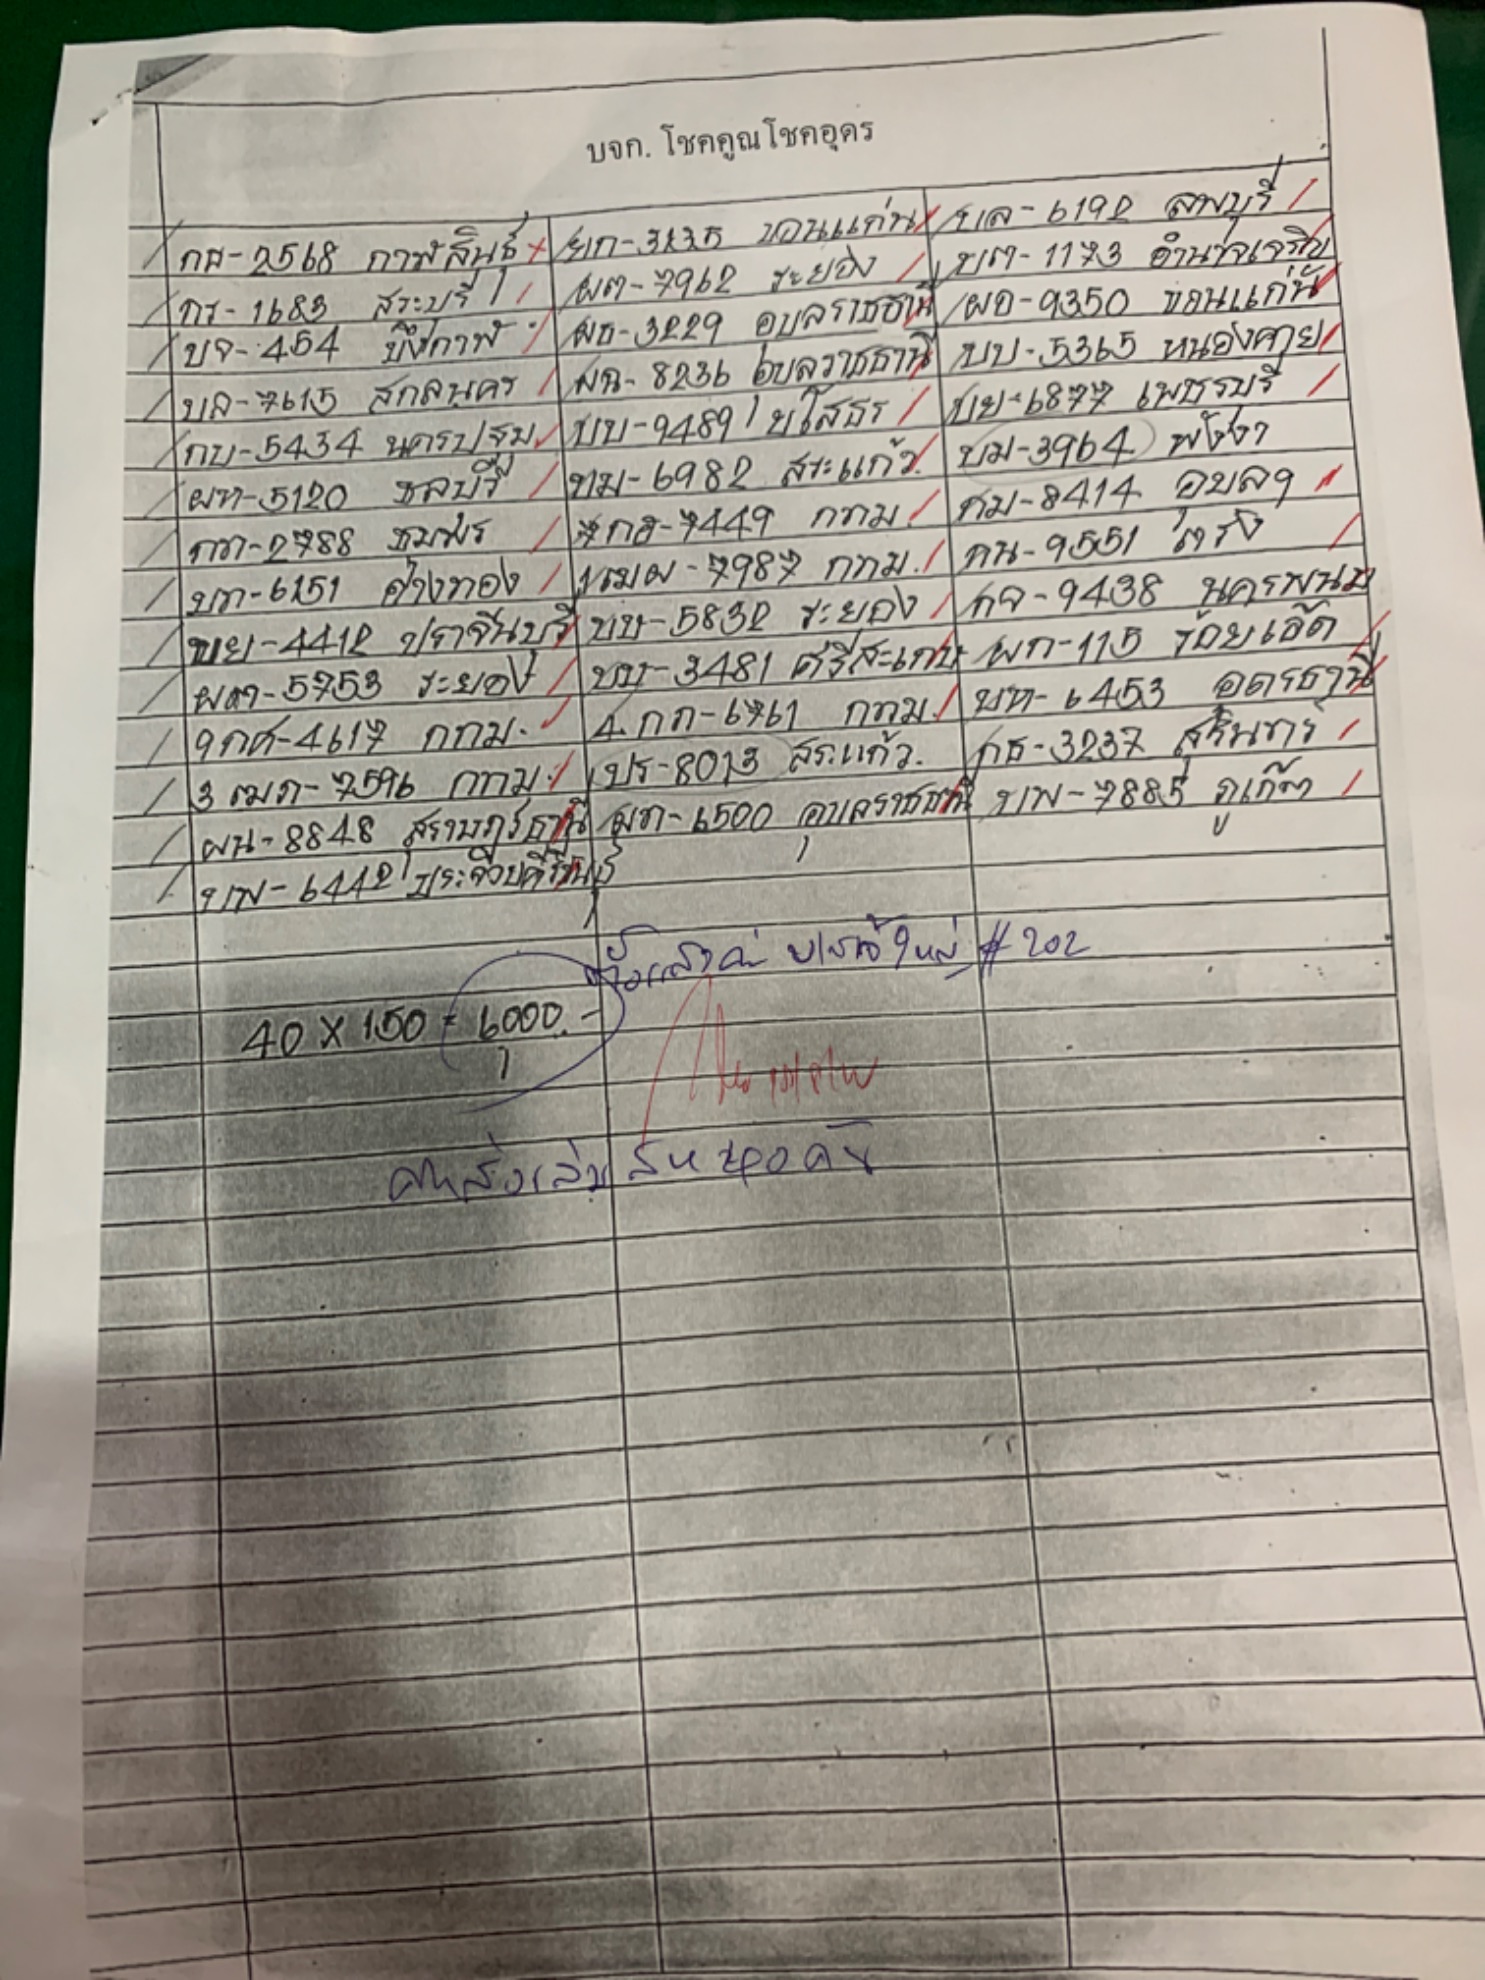 บจก. โชคคูณโชคอุดร
2568 กาฬสินธุ์
1683 สระบุรี
บจ-454 บึงกาฬ
บล-7615 สกลนคร
กบ-5434 นครปฐม
ผท-5120 ชลบุรี
2788 ชุมพร
6151 อ่างทอง
ขย-4412 ปราจีนบุรี
ผต-5753 ระยอง
9กศ-4617 กทม.
3 ฒภ-7596 กทม.
ผน-8848 สุราษฎร์ธานี
บพ-6442 ประจวบคีรีขันธ์
ขอนแก่น
ผต-7962 ระยอง
ผธ-3229 อุบลราชธานี
ผฉ-8236 อุบลราชธานี
บบ-9489 ยโสธร
6982 สระแก้ว
7449 กทม.
1ฒผ-7987 กทม.
5832 ระยอง
3481 ศรีสะเกษ
6761 กทม.
8013 สระแก้ว.
6500 อุบลราชธานี
บล-6192 ลพบุรี
บต-1173 อำนาจเจริญ
ผอ-9350 ขอนแก่น
บบ-5365 หนองคาย
บย-6877 เพชรบุรี
บม-3964 พังงา
กม-8414 อุบลฯ
กน-9551 ตรัง
กจ-9438 นครพนม
ผก-115 ร้อยเอ็ด
บท-6453 อุดรธานี
กธ-3237 สุรินทร์
บพ-7885 ภูเก็ต
# 202
40 X 150 = 6000.-